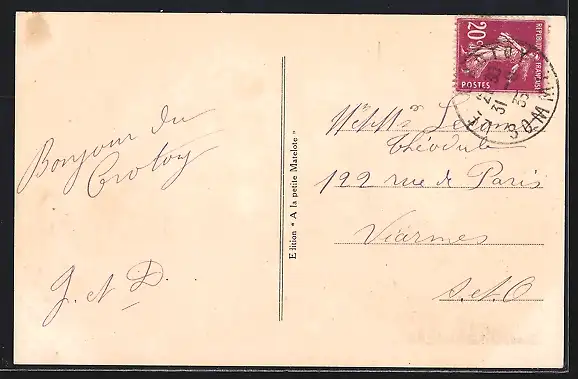 Bonjour du
Crotoy
J. et D.
Edition " A la petite Matelote "
20c
REPUBLIQUE FRANÇAISE
POSTES
31
35
SOMME
Mr et Me
Théodule
122 rue de Paris
Viarmes
S. et. O